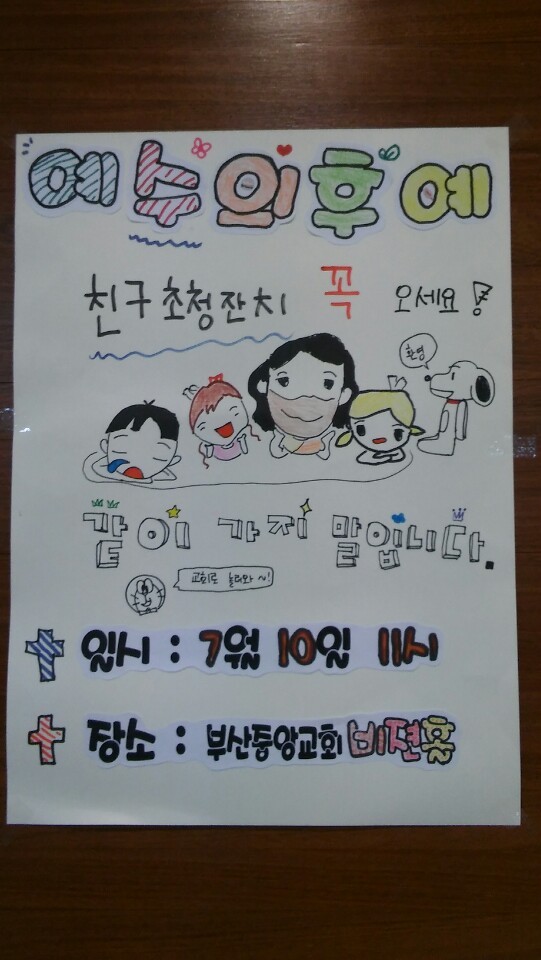 예수의후예
친구초청잔치 꼭 오세요!
환영
같이 가지 말입니다.
교회로 놀러와~!
일시 : 7월 10일 11시
장소 : 부산중앙교회 비젼홀